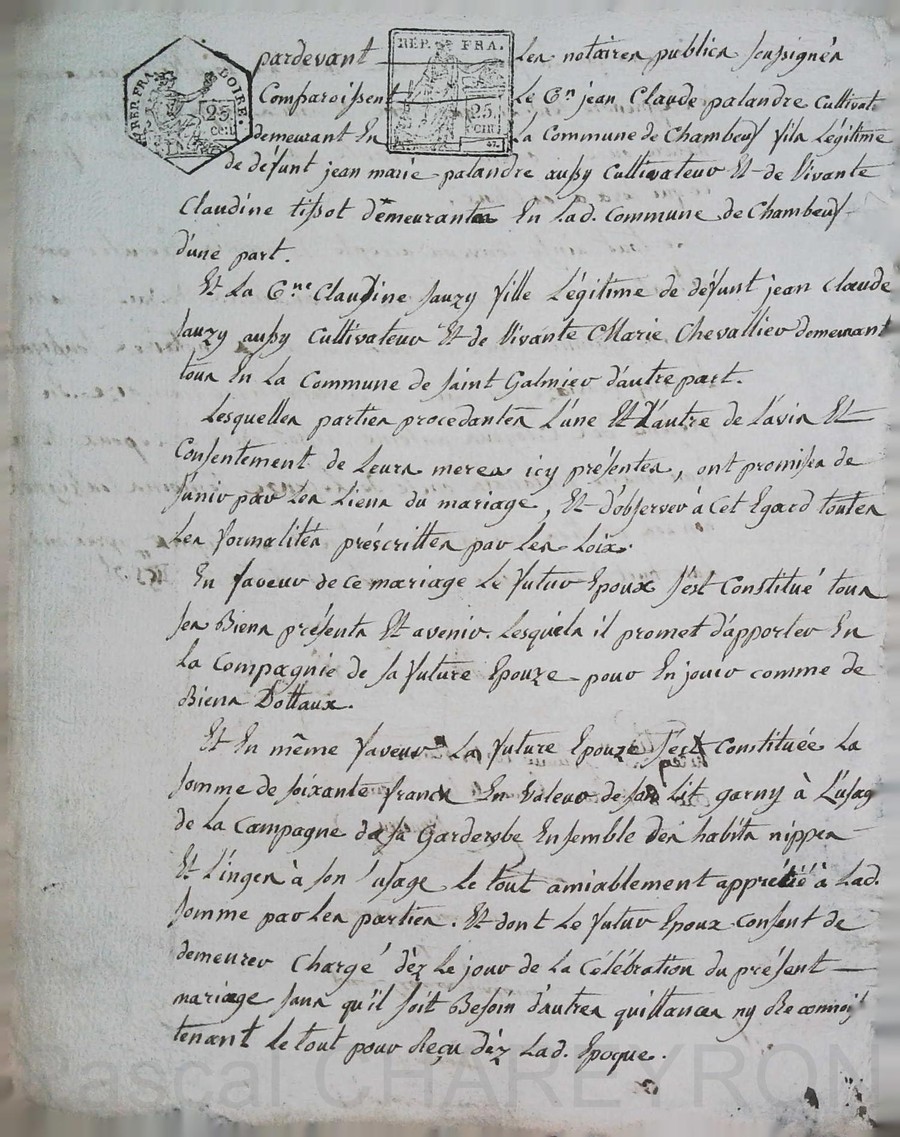 REP. FRA. LOIRE.
25 cen
REP. FRA.
25. cen
pardevant Les notaires publics soussignés
Comparoissent Le C.en jean Claude palandre Cultivat
demeurant En La Commune de Chambeuf fils Légitime
de défunt jean marie palandre aussy Cultivateur Et de Vivante
Claudine tissot demeurantes En Lad. Commune de Chambeuf
d'une part.
Et La C.ne Claudine Jauzy fille Légitime de défunt jean claude
Jauzy aussy Cultivateur Et de Vivante Marie Chevallier demeurant
tous En La Commune de Saint Galmier d'autre part.
Lesquelles parties procedantes L'une Et L'autre de L'avis Et
Consentement de Leurs meres icy présentes, ont promises de
S'unir par Les Liens du mariage, Et d'observer à Cet Egard toutes
Les formalités préscrittes par Les Loix.
En faveur de ce mariage Le futur Epoux s'est Constitué tous
ses Biens présents Et avenir. Lesquels il promet d'apporter En
La Compagnie de sa future Epouze pour En jouir comme de
Biens Dottaux.
Et En même faveur La future Epouze s'est constituée La
somme de soixante francs En Valeur de son Lit garny à L'usag
de La Campagne de sa Garderobe Ensemble des habits nippes
Et L'inges à son usage Le tout amiablement apprétié à Lad.
somme par Les parties. Et dont Le futur Epoux consent de
demeurer Chargé dèz Le jour de La Célébration du présent
mariage sans qu'il soit Besoin d'autres quittances ny Reconnois
tenant Le tout pour Reçu dèz Lad. Epoque.
Pascal CHAREYRON